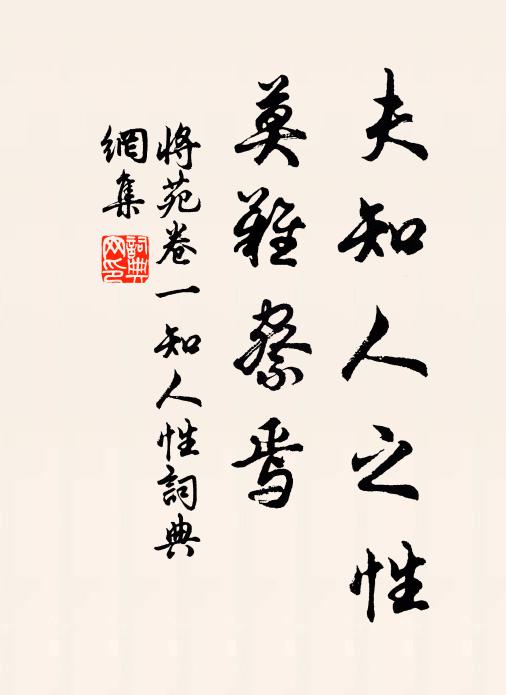 夫知人之性
莫難察焉
將苑卷一知人性詞典
網集
詞典网印